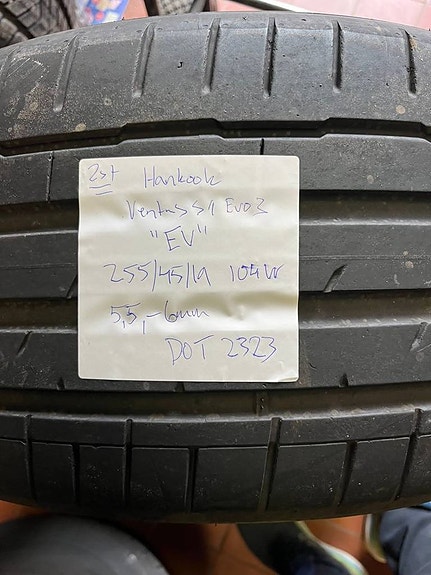 2st Hankook
Ventus S1 Evo3
"EV"
255/45/19 104W
5,5,-6mm
DOT 2323